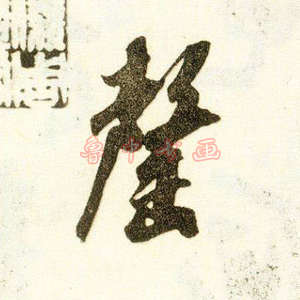 釐
鲁中书画